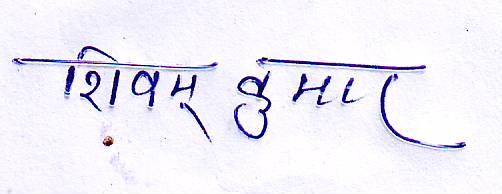 शिवम् कुमार